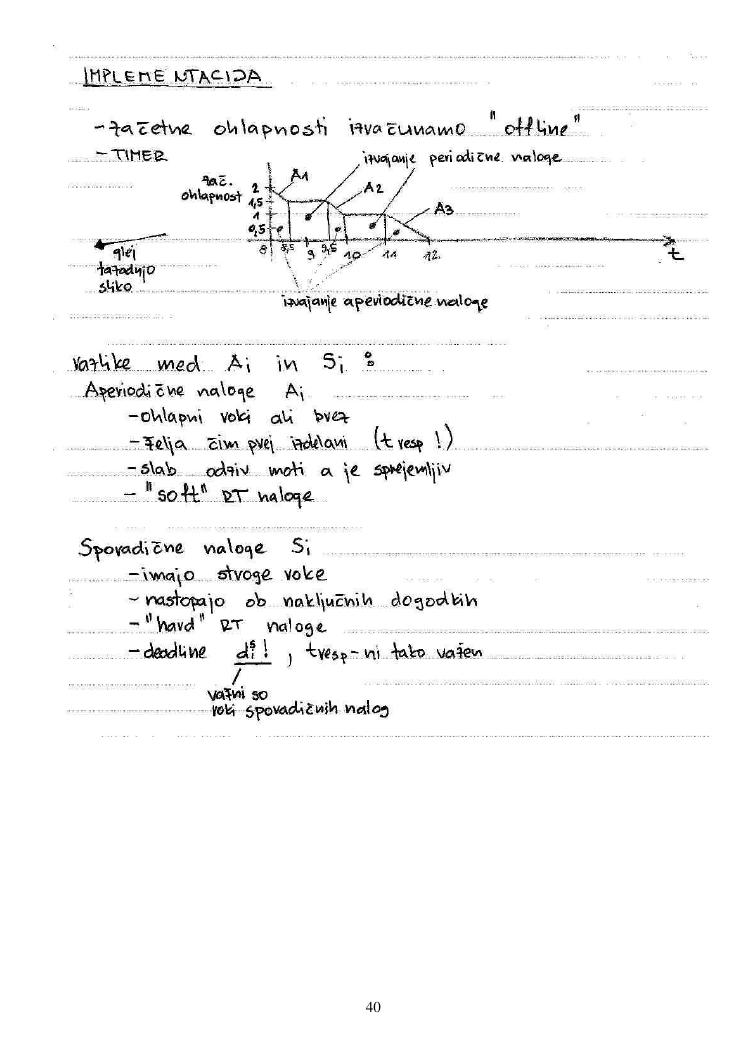 IMPLEMENTACIJA
- začetne ohlapnosti izračunamo "offline"
- TIMER
izvajanje periodične naloge
zač.
ohlapnost
2
1,5
1
0,5
A1
A2
A3
8 8,5 9 9,5 10 11 12
t
glej
zazadnjo
sliko
izvajanje aperiodične naloge
razlike med Ai in Si :
Aperiodične naloge Ai
- ohlapni roki ali brez
- želja čim prej izdelani (tresp !)
- slab odziv moti a je sprejemljiv
- "soft" RT naloge
Sporadične naloge Si
- imajo stroge roke
- nastopajo ob naključnih dogodkih
- "hard" RT naloge
- deadline di^s ! , tresp - ni tako važen
važni so
roki sporadičnih nalog
40